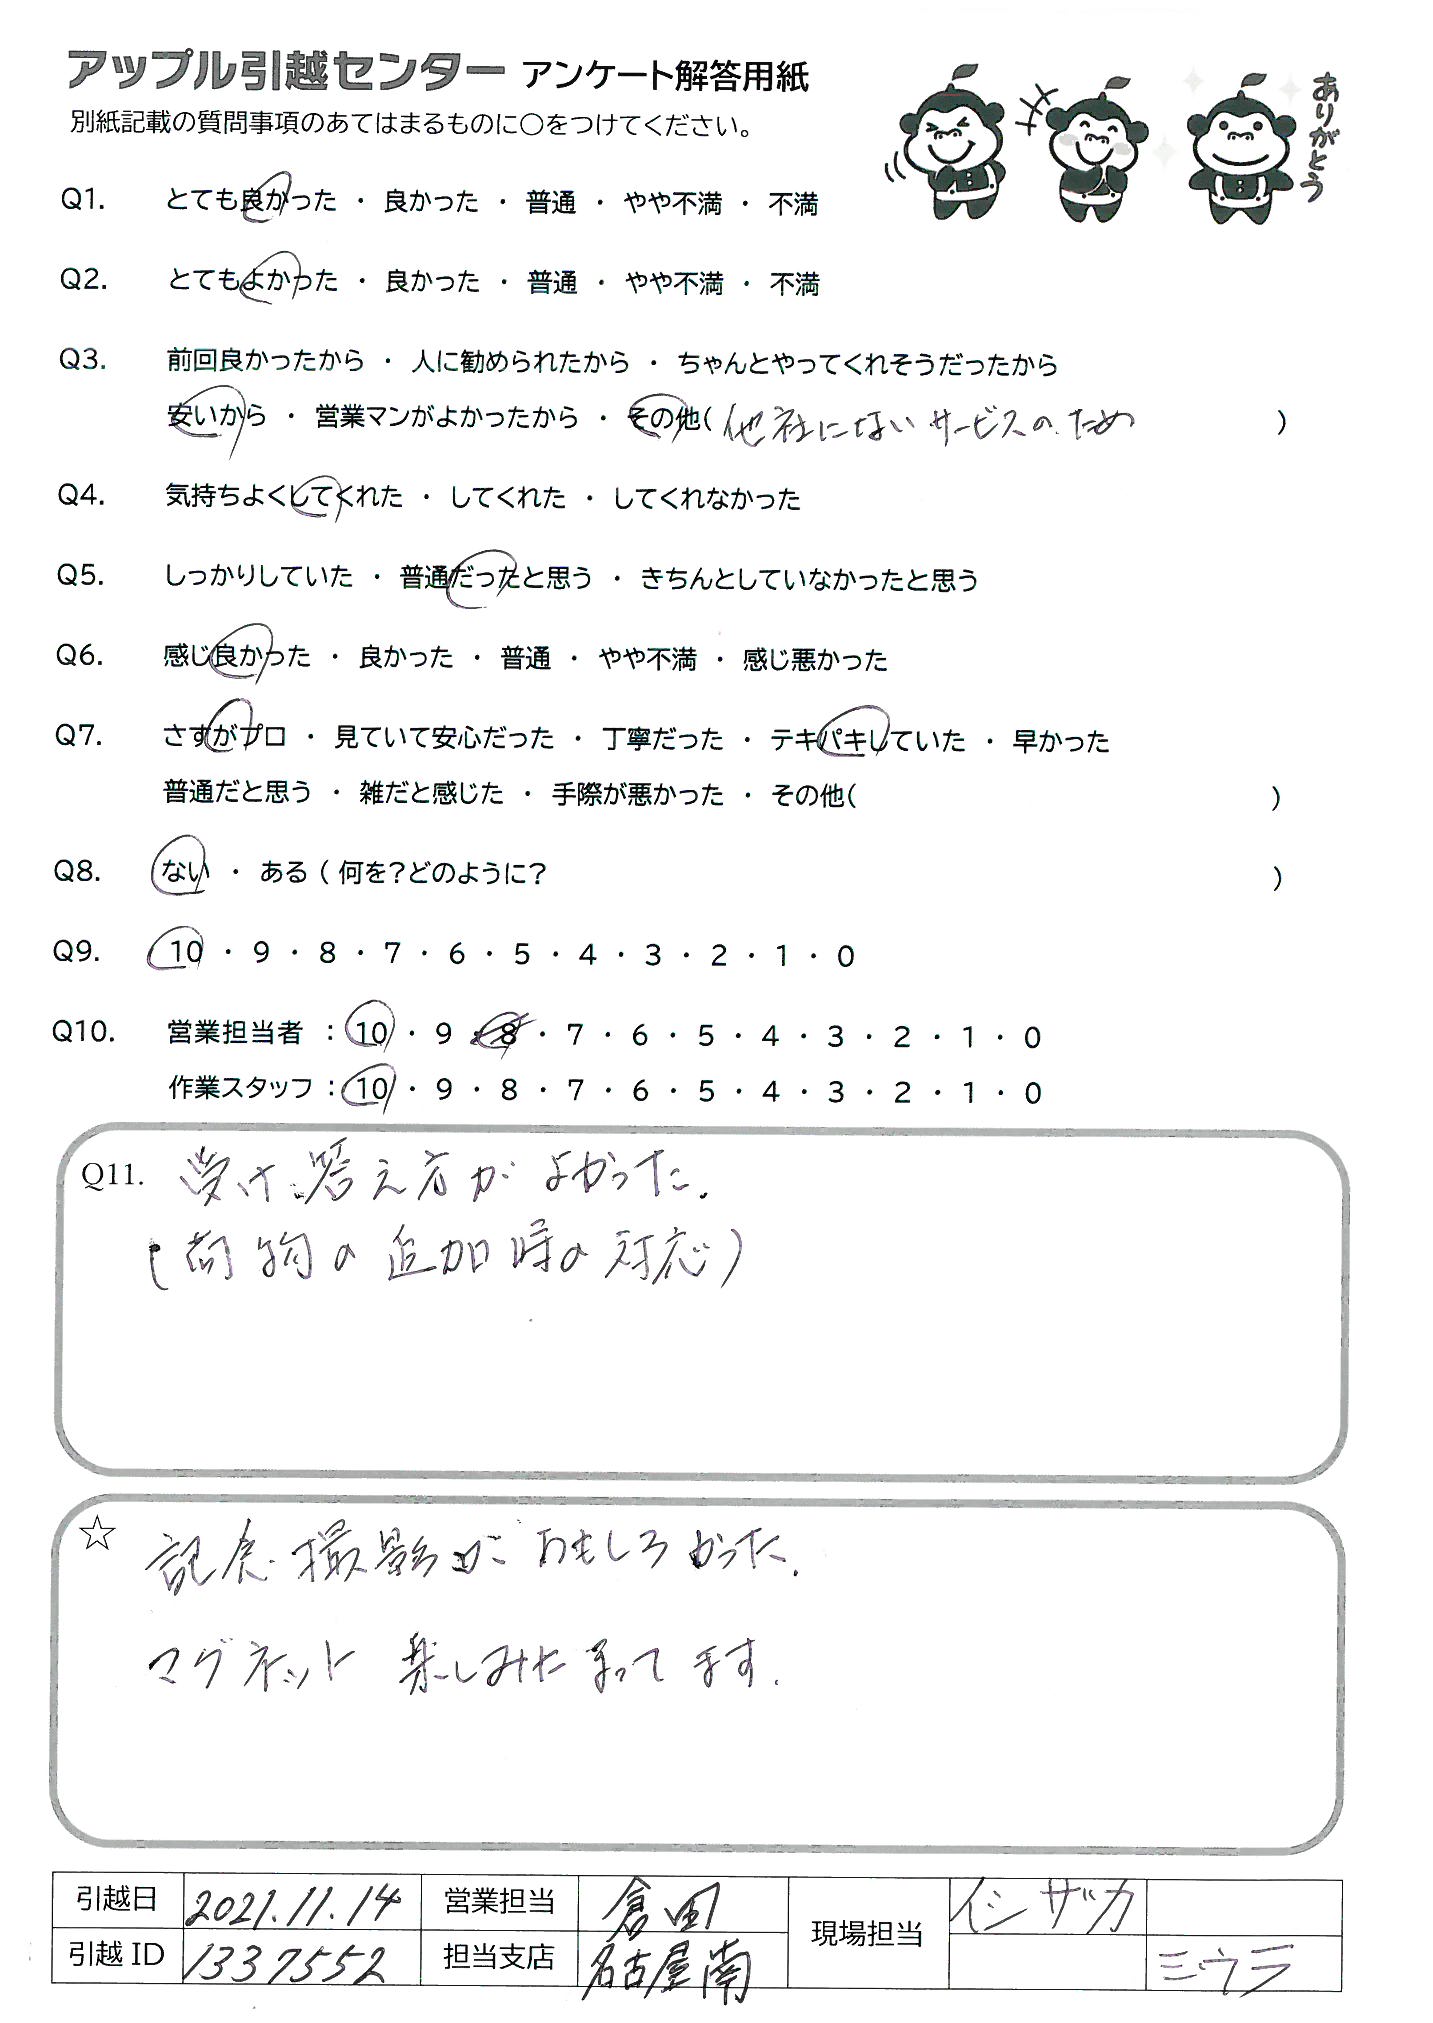 アップル引越センター アンケート解答用紙
別紙記載の質問事項のあてはまるものに〇をつけてください。
ありがとう
Q1. とても良かった ・ 良かった ・ 普通 ・ やや不満 ・ 不満
Q2. とてもよかった ・ 良かった ・ 普通 ・ やや不満 ・ 不満
Q3. 前回良かったから ・ 人に勧められたから ・ ちゃんとやってくれそうだったから
安いから ・ 営業マンがよかったから ・ その他( 他社にないサービスのため )
Q4. 気持ちよくしてくれた ・ してくれた ・ してくれなかった
Q5. しっかりしていた ・ 普通だったと思う ・ きちんとしていなかったと思う
Q6. 感じ良かった ・ 良かった ・ 普通 ・ やや不満 ・ 感じ悪かった
Q7. さすがプロ ・ 見ていて安心だった ・ 丁寧だった ・ テキパキしていた ・ 早かった
普通だと思う ・ 雑だと感じた ・ 手際が悪かった ・ その他( )
Q8. ない ・ ある ( 何を？どのように？ )
Q9. 10 ・ 9 ・ 8 ・ 7 ・ 6 ・ 5 ・ 4 ・ 3 ・ 2 ・ 1 ・ 0
Q10. 営業担当者 : 10 ・ 9 ・ 8 ・ 7 ・ 6 ・ 5 ・ 4 ・ 3 ・ 2 ・ 1 ・ 0
作業スタッフ : 10 ・ 9 ・ 8 ・ 7 ・ 6 ・ 5 ・ 4 ・ 3 ・ 2 ・ 1 ・ 0
Q11. 受け答え方がよかった.
(荷物の追加時の対応)
☆ 記念撮影がおもしろかった.
マグネット 楽しみにまってます.
引越日 2021.11.14 営業担当 倉田 現場担当 イシザカ
引越 ID 1337552 担当支店 名古屋南 ミウラ